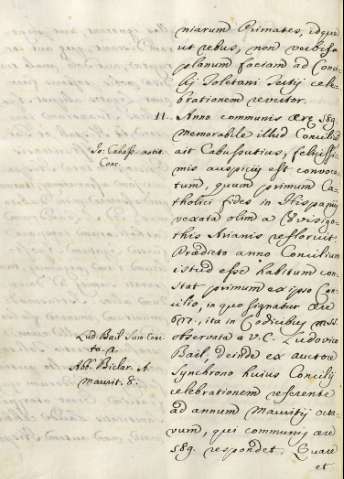 niarum Primates, idque
ut rebus, non verbis
planum faciam ad Conci-
lij Toletani Tertij cele-
brationem revertor.
11. Anno communis æræ 589
memorabile illud Concilium
ait Cabasutius, felicissi-
mis auspicijs est convoca-
tum, quum primum Ca-
tholici fides in Hispanijs
vexata olim a Visigo-
this Arianis refloruit
Prædicto anno Concilium
istud esse habitum con-
stat primum ex ipso Con-
cilio, in quo signatur ære
627. ita in Codicibus mss.
observata a V. C. Ludovico
Bail, deinde ex auctore
Synchrono huius Concilij
celebrationem referente
ad annum Mauritij octa-
vum, qui communis æræ
589. respondet. Quare
et
Io: Cabass. notit.
Conc.
Lud. Bail Sum Conc
to. 2.
Abb. Biclar. A.
Maurit. 8.